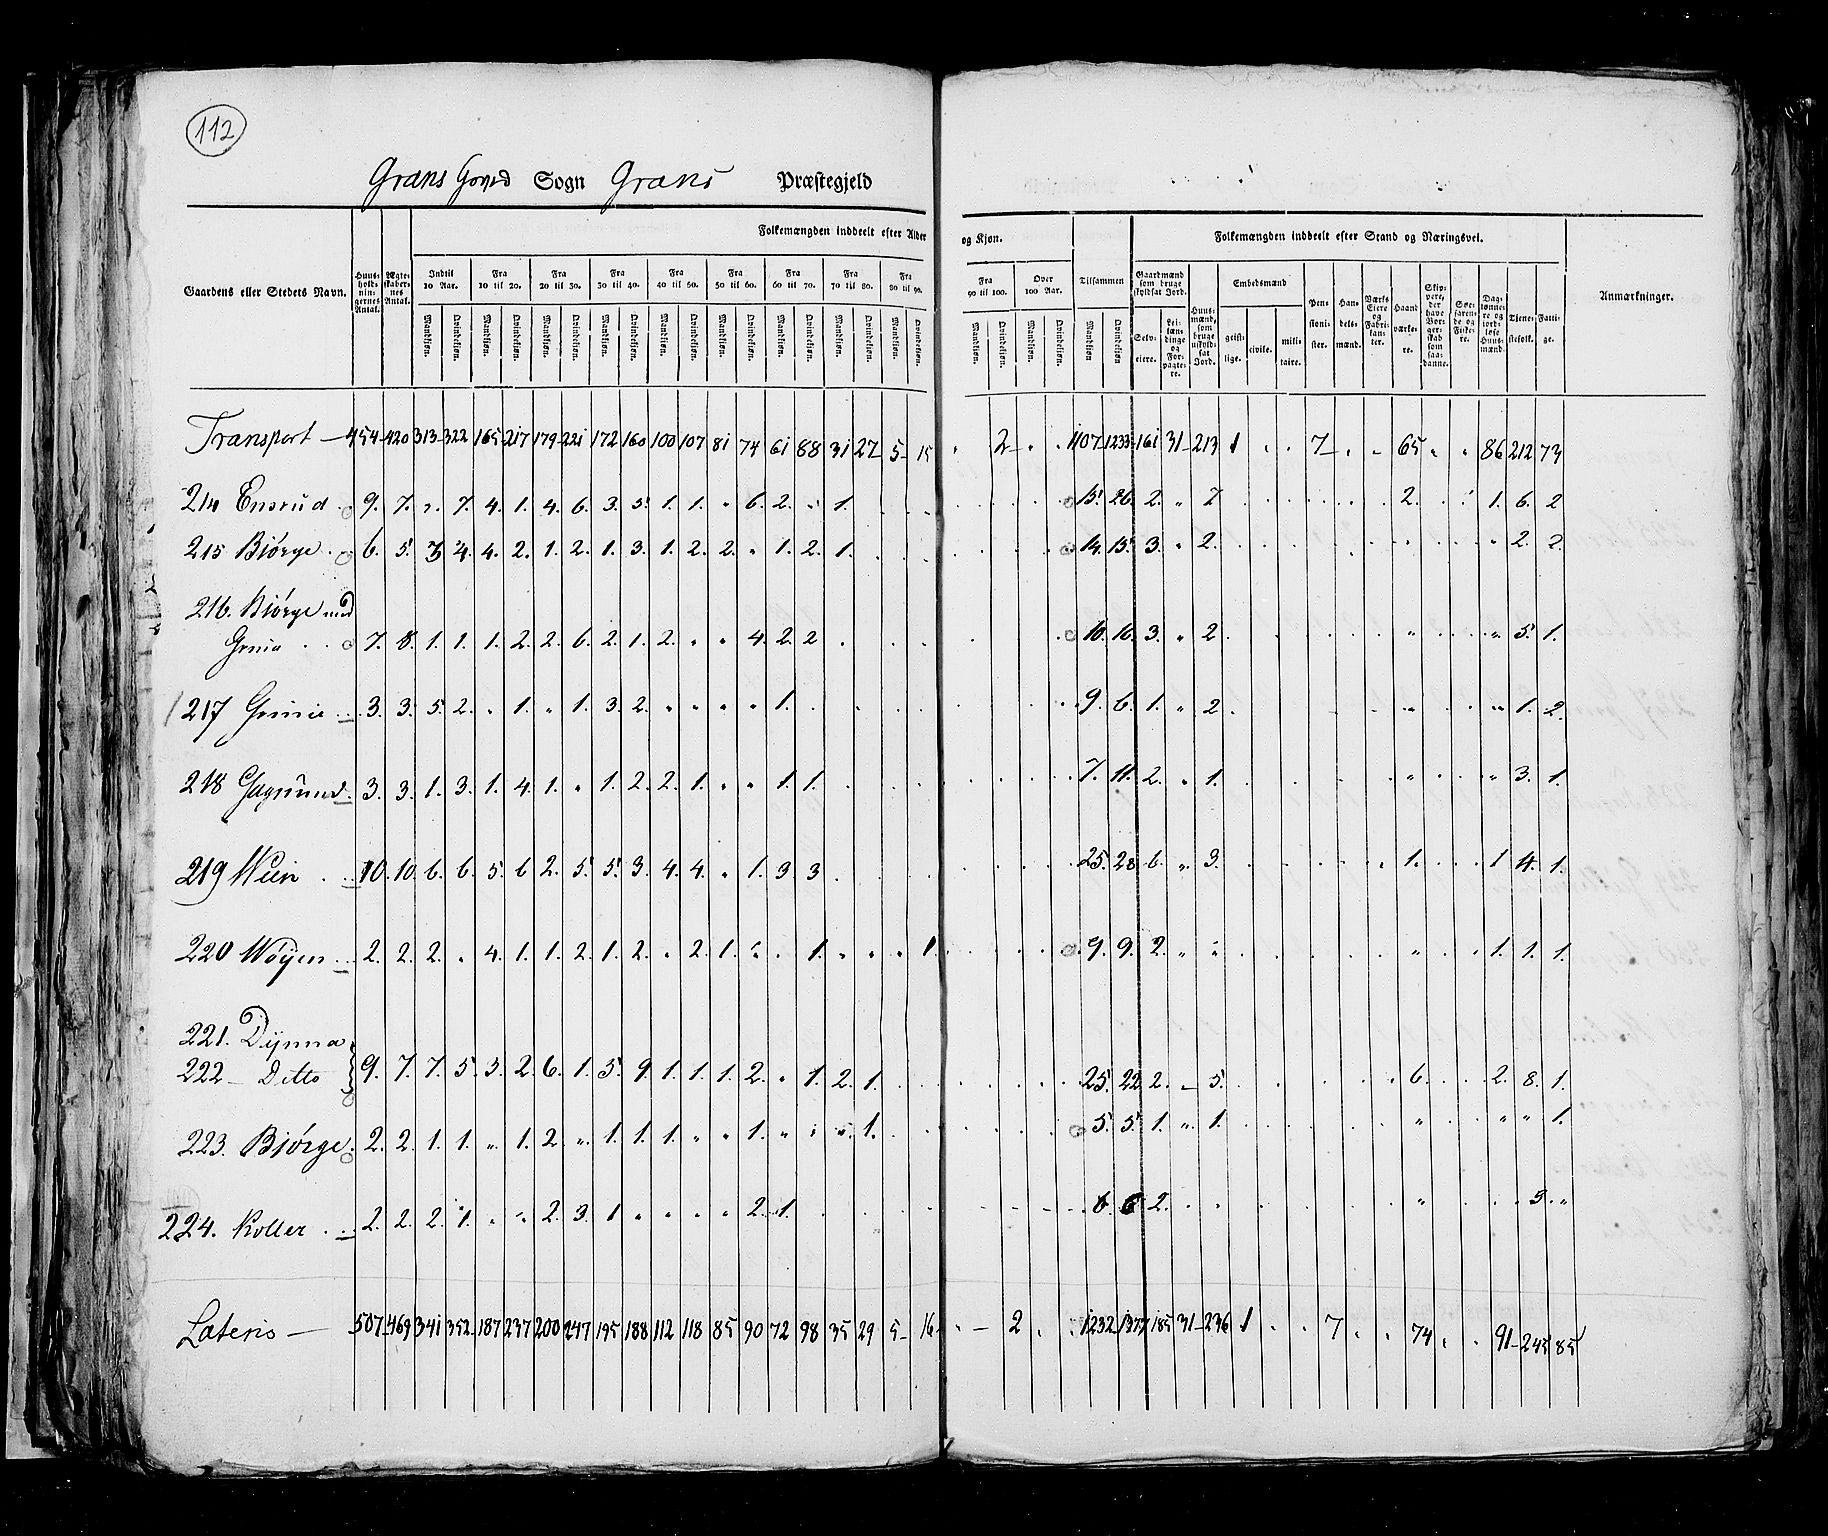 112
Grans Hoved Sogn Grans Præstegjeld
Folkemængden inddeelt efter Alder og Kjøn.
Folkemængden inddeelt efter Stand og Næringsvei.
Gaardens eller Stedets Navn. Huus-holdnin-gernes Antal. Ægte-skaber-nes Antal. Indtil 10 Aar. Fra 10 til 20. Fra 20 til 30. Fra 30 til 40. Fra 40 til 50. Fra 50 til 60. Fra 60 til 70. Fra 70 til 80. Fra 80 til 90. Fra 90 til 100. Over 100 Aar. Tilsammen
Gaardmænd som bruge skyldsat Jord. Selv-eiere. Lei-lændinge og For-pagte-re. Huus-mænd, som bruge uskyld-sat Jord. Embedsmænd geist-lige. civile. mili-taire. Pen-sioni-ster. Han-dels-mænd. Værks Eiere og Fabri-kan-ter. Haand værke-re. Skip-pere, der have Bor-ger-skab som saa-danne. Søe-faren-de og Fiske-re. Dag-lønne-re og jord-løse Huus-mænd. Tjene-stefolk. Fatti-ge. Anmærkninger.
Mandkjøn. Qvindekjøn. Mandkjøn. Qvindekjøn. Mandkjøn. Qvindekjøn. Mandkjøn. Qvindekjøn. Mandkjøn. Qvindekjøn. Mandkjøn. Qvindekjøn. Mandkjøn. Qvindekjøn. Mandkjøn. Qvindekjøn. Mandkjøn. Qvindekjøn. Mandkjøn. Qvindekjøn. Mandkjøn. Qvindekjøn. Mandkjøn Qvindekjøn
Transport — 454 420 313 322 165 217 179 221 172 160 100 107 81 74 61 88 31 27 5 15 . 2 . . 1107 1233 161 31 213 1 . . 7 . . 65 . . 86 212 73
214 Ensrud . 9. 7. 7. 4. 1. 4. 6. 3. 5. 1. 1. " 6. 2. " 1. 15. 26. 2. " 7 2. 1. 6. 2
215 Biørge . 6. 5. 3 4. 4. 2. 1. 2. 1. 3. 1. 2. 2. " 1. 2. 1. 14. 15. 3. " 2. " 2. 2.
216. Biørge med
Grinie . . 7. 8. 1. 1. 1. 2. 2. 6. 2. 1. 2. " " 4. 2. 2 10. 16. 3. " 2. " " 5. 1.
217 Grinie . . 3. 3. 5. 2. " 1. " 1. 3. 2. " " " " 1. 9. 6. 1. " 2. " " 1. 2.
218 3. 3. 1. 3. 1. 4. 1. " 1. 2. 2. 1. " " 1. 1. 7. 11. 2. " 1. " " 3. 1.
219 . . 10. 10. 6. 6. 5. 6 2. 5. 5. 3. 4. 4. " 1. 3 3. 25. 28 6. " 3. 1. 1 4. 1.
220 Wøyen . . 2. 2. 2. " 4. 1. 1. 2. 1. 2. " 2. 1. " " 1. " " " 1. 9. 9. 2. " " " 1. 1. 1.
221. Dynna
222 — Ditto 9. 7. 7. 5. 3. 2. 6. 1. 5. 9. 1. 1. 1. 2. " 1. 2. 1. 25. 22 2. – 5. 6. 2. 8. 1.
223. Biørge. 2. 2. 1. 1. " 1. 2. " 1. 1. 1. " " 1. " " " 1. 5. 5. 1. " 1. " " " 1.
224. Koller . . 2. 2. 2. 1. " " 2. 3. 1 " " " " 2. 1. 6. 6 2. " 3. "
Lateris — 507 469 341 352 187 237 200 247 195 188 112 118 85 90 72 98 35 29 5 16 . – 2 . . 1232 1377 185 31 236 1 . . 7 . . 74 . . 91 245 85